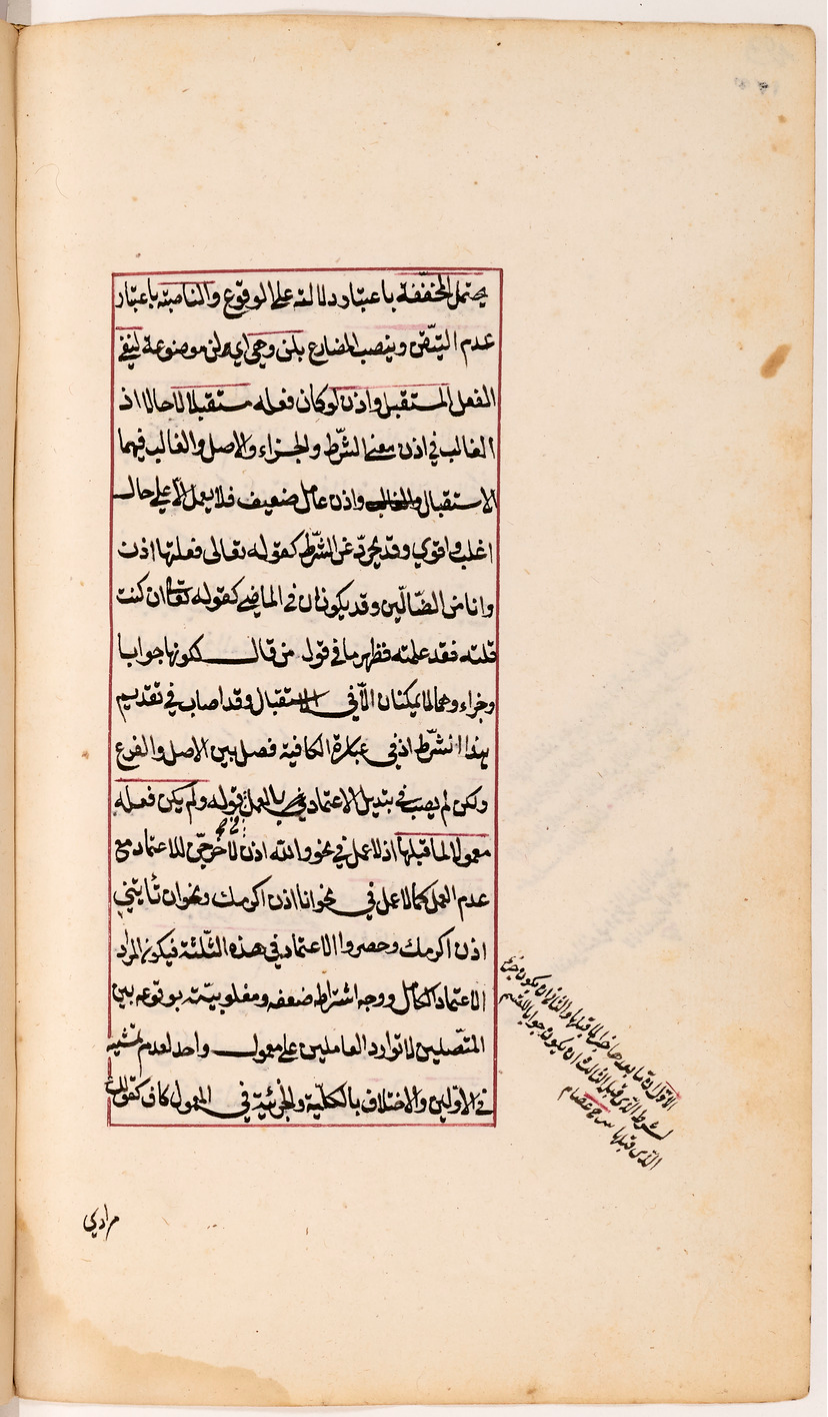 يحتمل المخففة باعتبار دلالته على الوقوع والناصبة باعتبار
عدم التيقن وينصب المضارع بلن وهي اي لن موضوعة لنفي
الفعل المستقبل واذن لو كان فعله مستقبلا لا حالا اذ
الغالب في اذن معنى الشّرط والجزاء والاصل والغالب فيهما
الاستقبال واذن عامل ضعيف فلا يعمل الّا على حال
اغلب واقوي وقد يجرّد عن الشّرط كقوله تعالى فعلتها اذن
وانا من الضّالّين وقد يكونان في الماضي كقوله تعا ان كنت
قلته فقد علمته فظهر ما في قول من قال لكونها جوابا
وجزاء وهما لا يمكنان الّا في الاستقبال وقد اصاب في تقديم
هذا الشّرط اذ في عبارة الكافية فصل بين الاصل والفرع
ولكن لم يصب في تبديل الاعتماد في بالعمل قوله ولم يكن فعله
معمولا لما قبلها اذ لا عمل في نحو والله اذن لاخرجنّ للاعتماد مع
عدم العمل كما لا عمل في نحو انا اذن اكرمك ونحو ان تأتني
اذن اكرمك وحصروا الاعتماد في هذه الثّلثة فيكون المراد
الاعتماد الكامل ووجه اشتراط ضعفه ومغلوبيّته بوقوعه بين
المتّصلين لا توارد العاملين على معمول واحد لعدم تمشيه
في الاوّلين والاختلاف بالكلّية والجزئية في المعمول كاف كقولك
الاوّل ان ما بعدها خبرا لما قبلها والثاني ان يكون جزاء
لشرط الذى قبل الثالث ان يكون جوابا للقسم
الذى قبلها عصام
مرادي